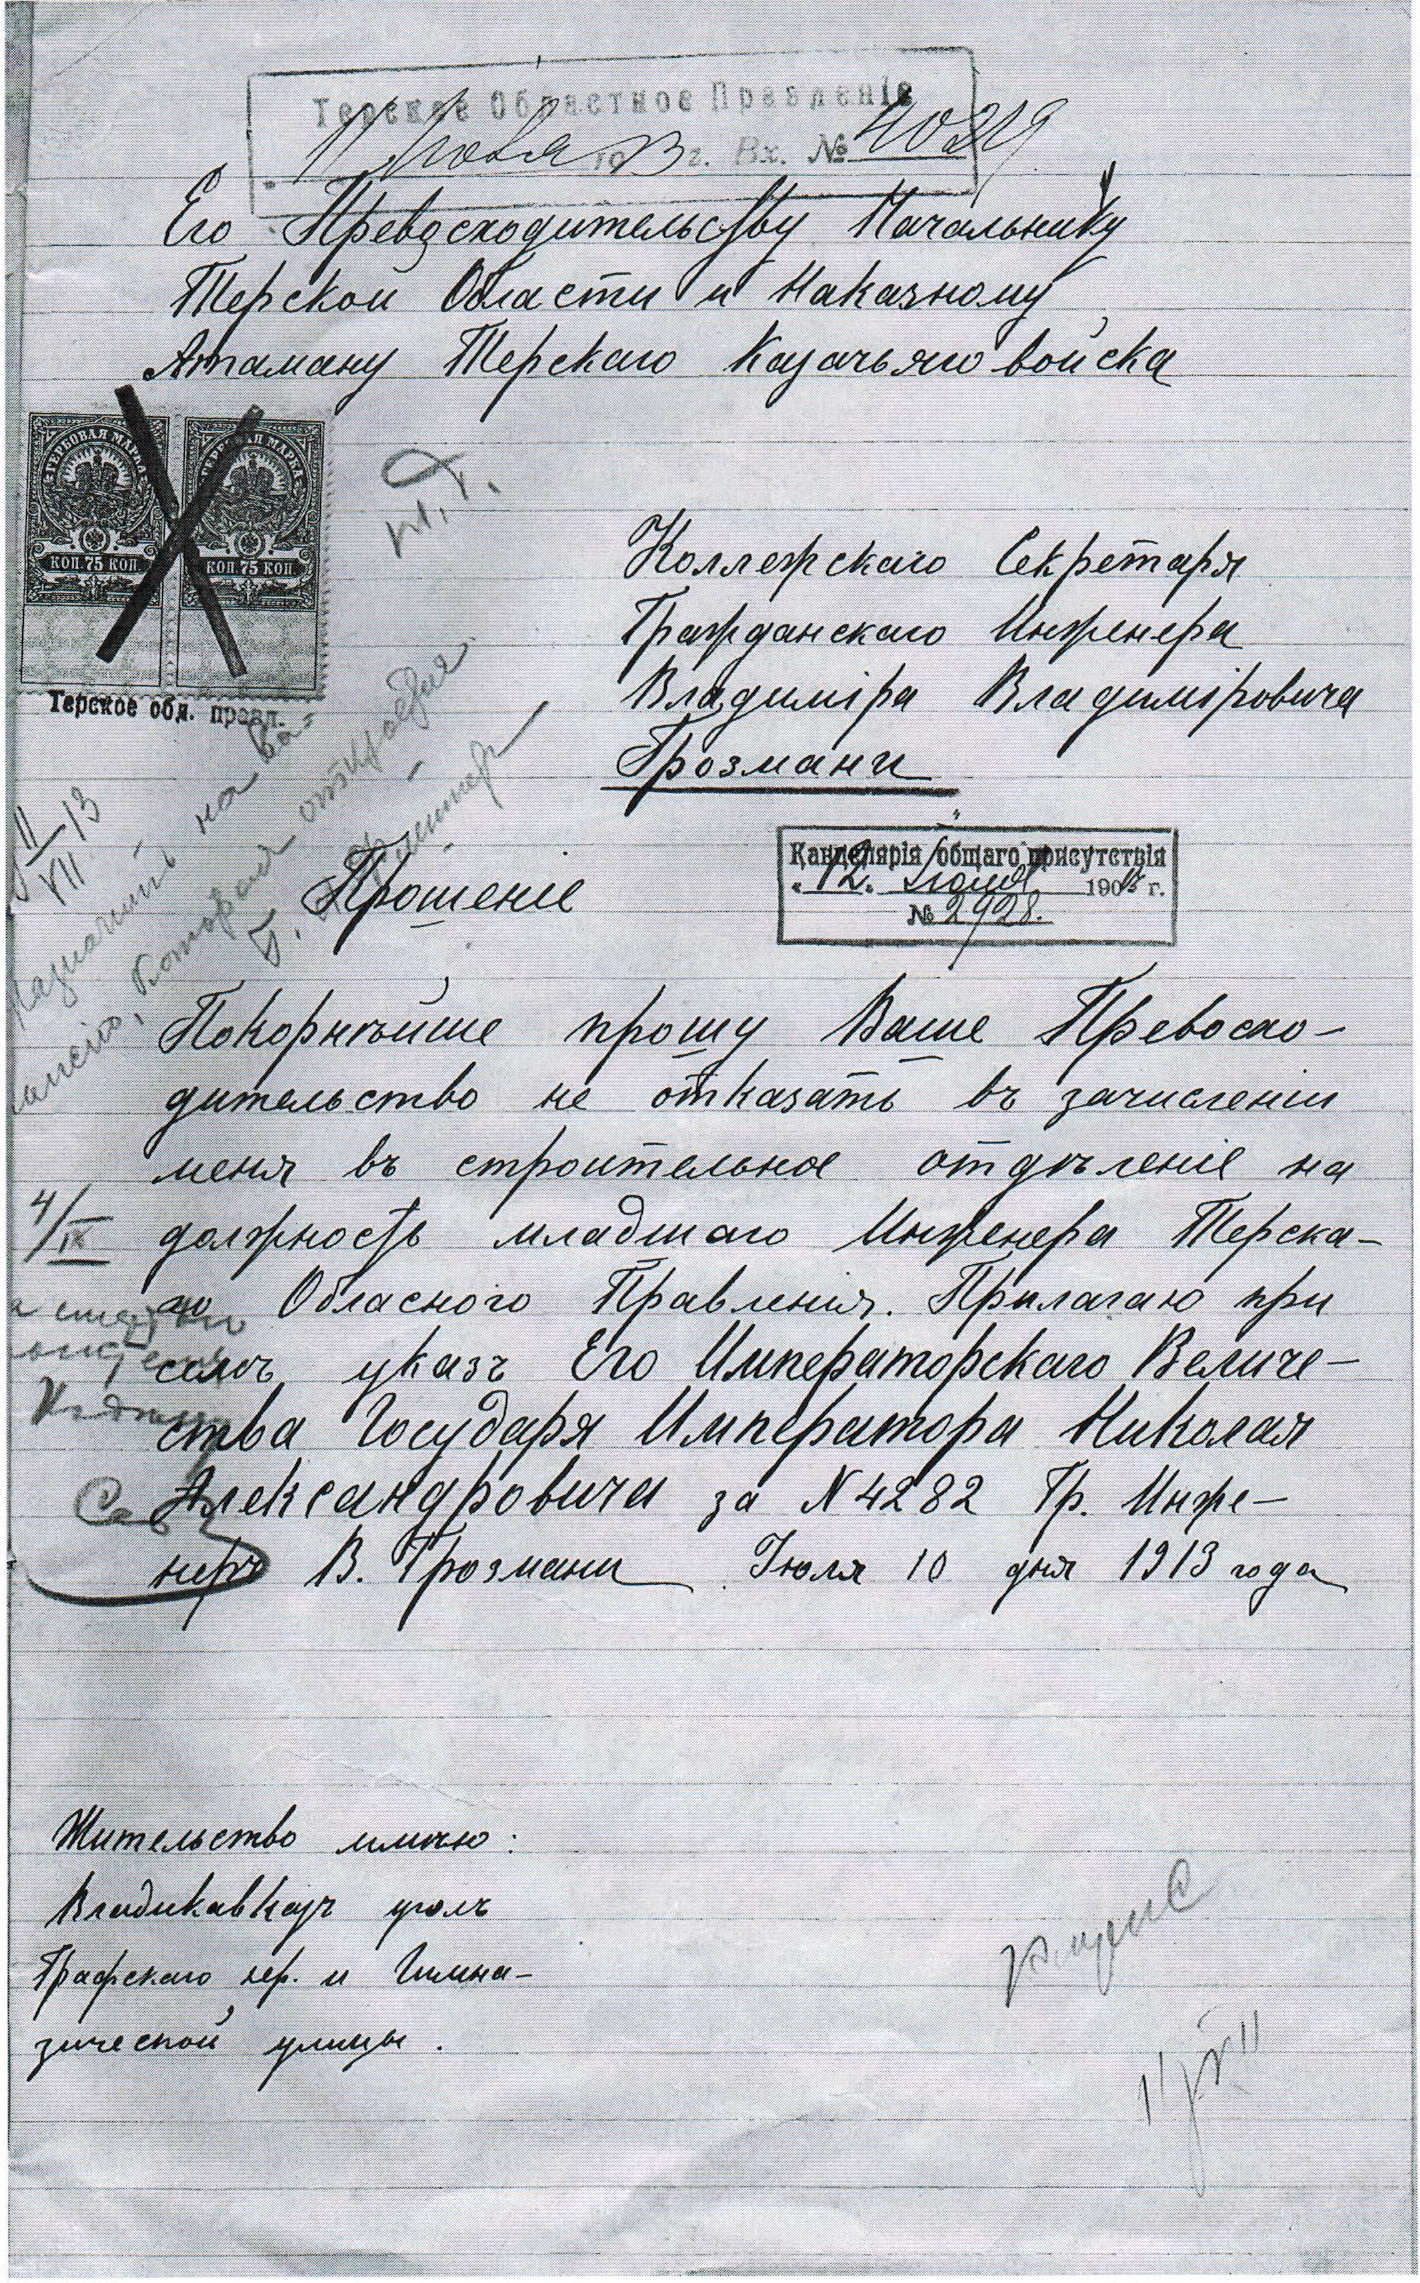 Терское Областное Правленіе
11 Іюля 1913 г. Вх. №
Его Превосходительству Начальнику
Терской Области и Наказному
Атаману Терскаго Казачьяго войска
ГЕРБОВАЯ МАРКА ГЕРБОВАЯ МАРКА
КОП. 75 КОП. КОП. 75 КОП.
Терское обл. правл.
Коллежскаго Секретаря
Гражданскаго Инженера
Владиміра Владиміровича
Грозмани
11/VII 13
Назначить на ва=
которая откроется
Прошеніе
Канцелярія общаго присутствія
"12" Іюля 1913 г.
№ 2928.
Покорнѣйше прошу Ваше Превосхо-
дительство не отказать въ зачисленіи
меня въ строительное отдѣленіе на
должность младшаго Инженера Терска-
го Обласного Правленія. Прилагаю при
семъ указъ Его Императорскаго Величе-
ства Государя Императора Николая
Александровича за N 4282 Гр. Инже-
неръ В. Грозмани Іюля 10 дня 1913 года
4/IX
Жительство имѣю:
Владикавказъ уголъ
Графскаго пер. и Гимна-
зической улицы.